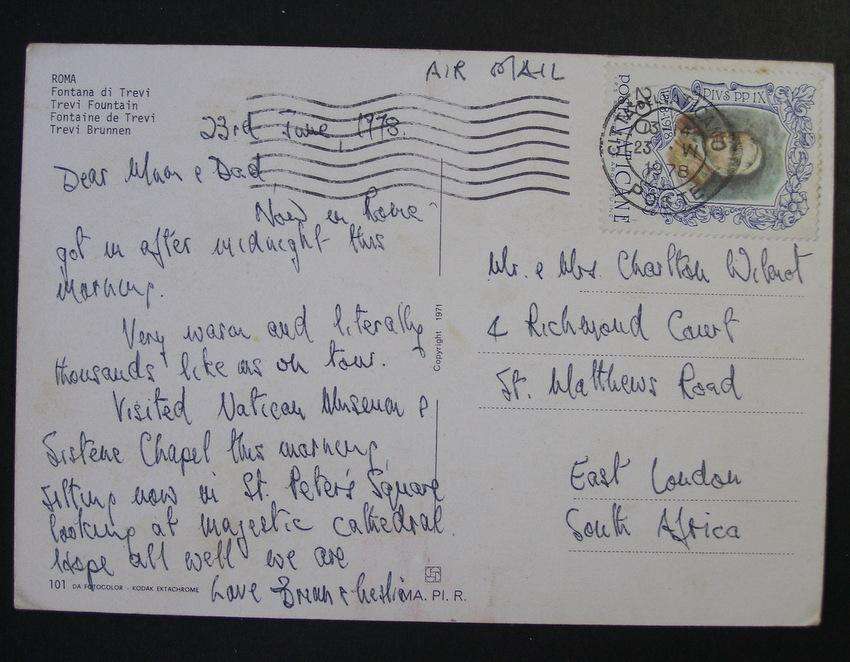 ROMA
Fontana di Trevi
Trevi Fountain
Fontaine de Trevi
Trevi Brunnen
AIR MAIL
POSTE VATICANE
PIVS PP IX
23rd June, 1978.
Dear Mum & Dad
Now in Rome -
got in after midnight this
morning.
Very warm and literally
thousands like us on tour.
Visited Vatican Museum &
Sistene Chapel this morning,
sitting now in St. Peter's Square
looking at majestic cathedral.
Hope all well we are
Love
Mr. & Mrs Charlton Wilmot
4 Richmond Court
St. Matthews Road
East London
South Africa
Copyright 1971
101 DA FOTOCOLOR - KODAK EKTACHROME
MA. PI. R.